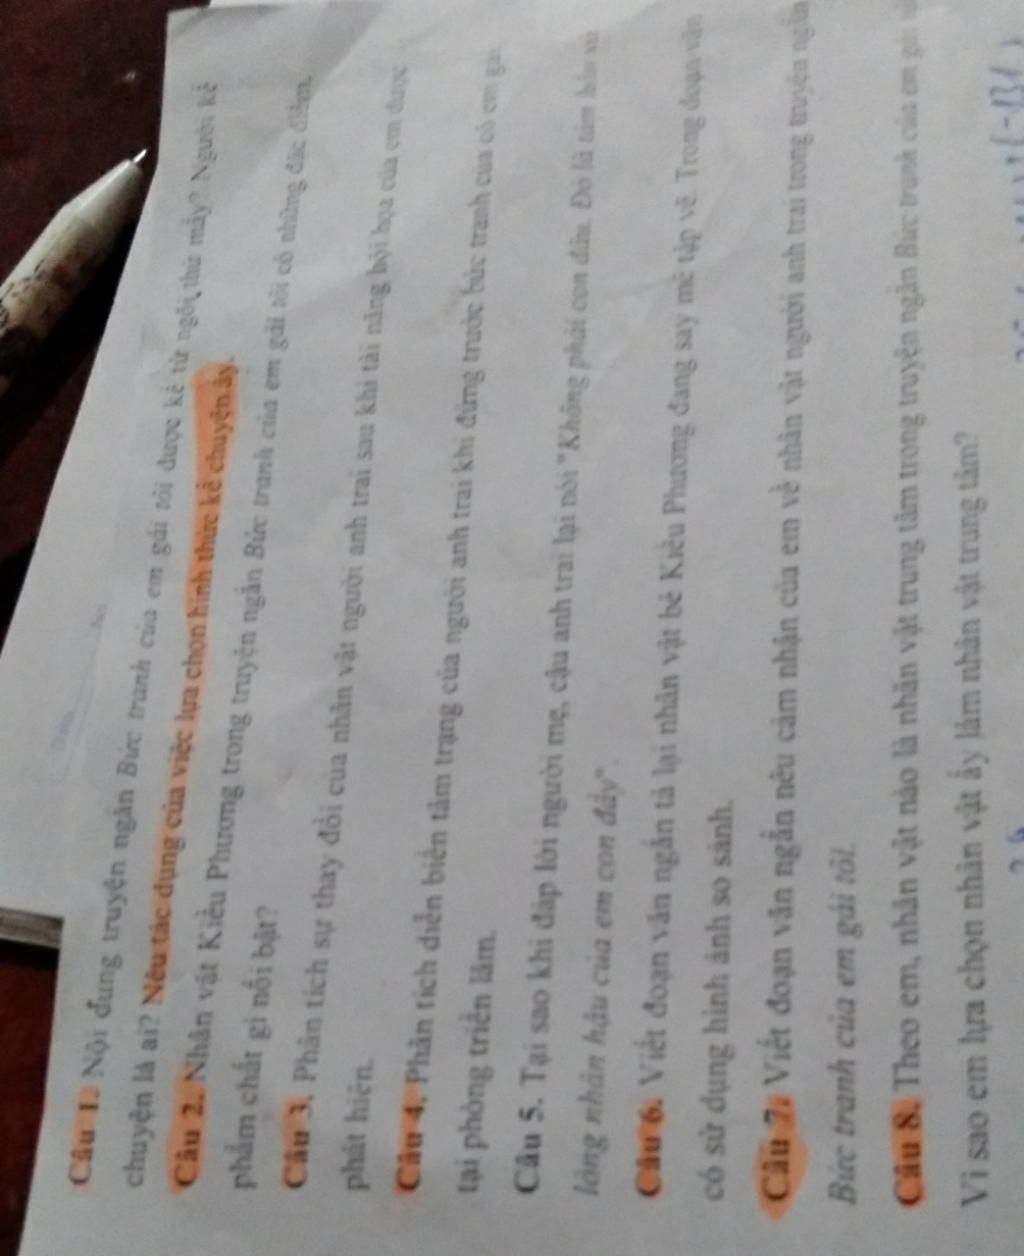 Câu 1. Nội dung truyện ngắn Bức tranh của em gái tôi được kể từ ngôi thứ mấy? Người kể
chuyện là ai? Nêu tác dụng của việc lựa chọn hình thức kể chuyện ấy.
Câu 2. Nhân vật Kiều Phương trong truyện ngắn Bức tranh của em gái tôi có những đặc điểm,
phẩm chất gì nổi bật?
Câu 3. Phân tích sự thay đổi của nhân vật người anh trai sau khi tài năng hội họa của em được
phát hiện.
Câu 4. Phân tích diễn biến tâm trạng của người anh trai khi đứng trước bức tranh của cô em gái
tại phòng triển lãm.
Câu 5. Tại sao khi đáp lời người mẹ, cậu anh trai lại nói "Không phải con đâu. Đó là tâm hồn và
lòng nhân hậu của em con đấy".
Câu 6. Viết đoạn văn ngắn tả lại nhân vật bé Kiều Phương đang say mê tập vẽ. Trong đoạn văn
có sử dụng hình ảnh so sánh.
Câu 7. Viết đoạn văn ngắn nêu cảm nhận của em về nhân vật người anh trai trong truyện ngắn
Bức tranh của em gái tôi.
Câu 8. Theo em, nhân vật nào là nhân vật trung tâm trong truyện ngắn Bức tranh của em gái
Vì sao em lựa chọn nhân vật ấy làm nhân vật trung tâm?